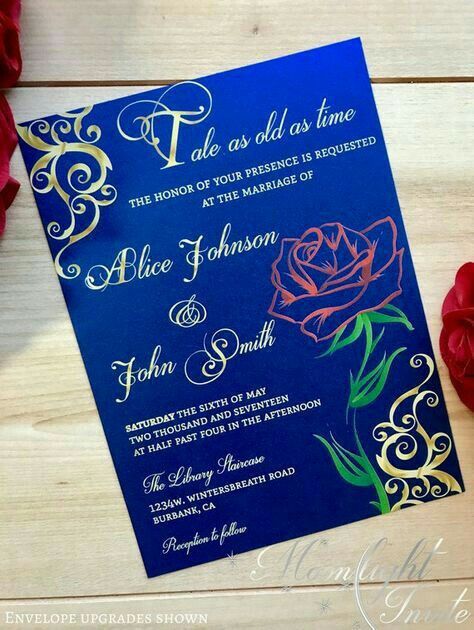 Tale as old as time
THE HONOR OF YOUR PRESENCE IS REQUESTED
AT THE MARRIAGE OF
Alice Johnson
&
John Smith
SATURDAY THE SIXTH OF MAY
TWO THOUSAND AND SEVENTEEN
AT HALF PAST FOUR IN THE AFTERNOON
The Library Staircase
1234W. WINTERSBREATH ROAD
BURBANK, CA
Reception to follow
Moonlight
Invite
ENVELOPE UPGRADES SHOWN